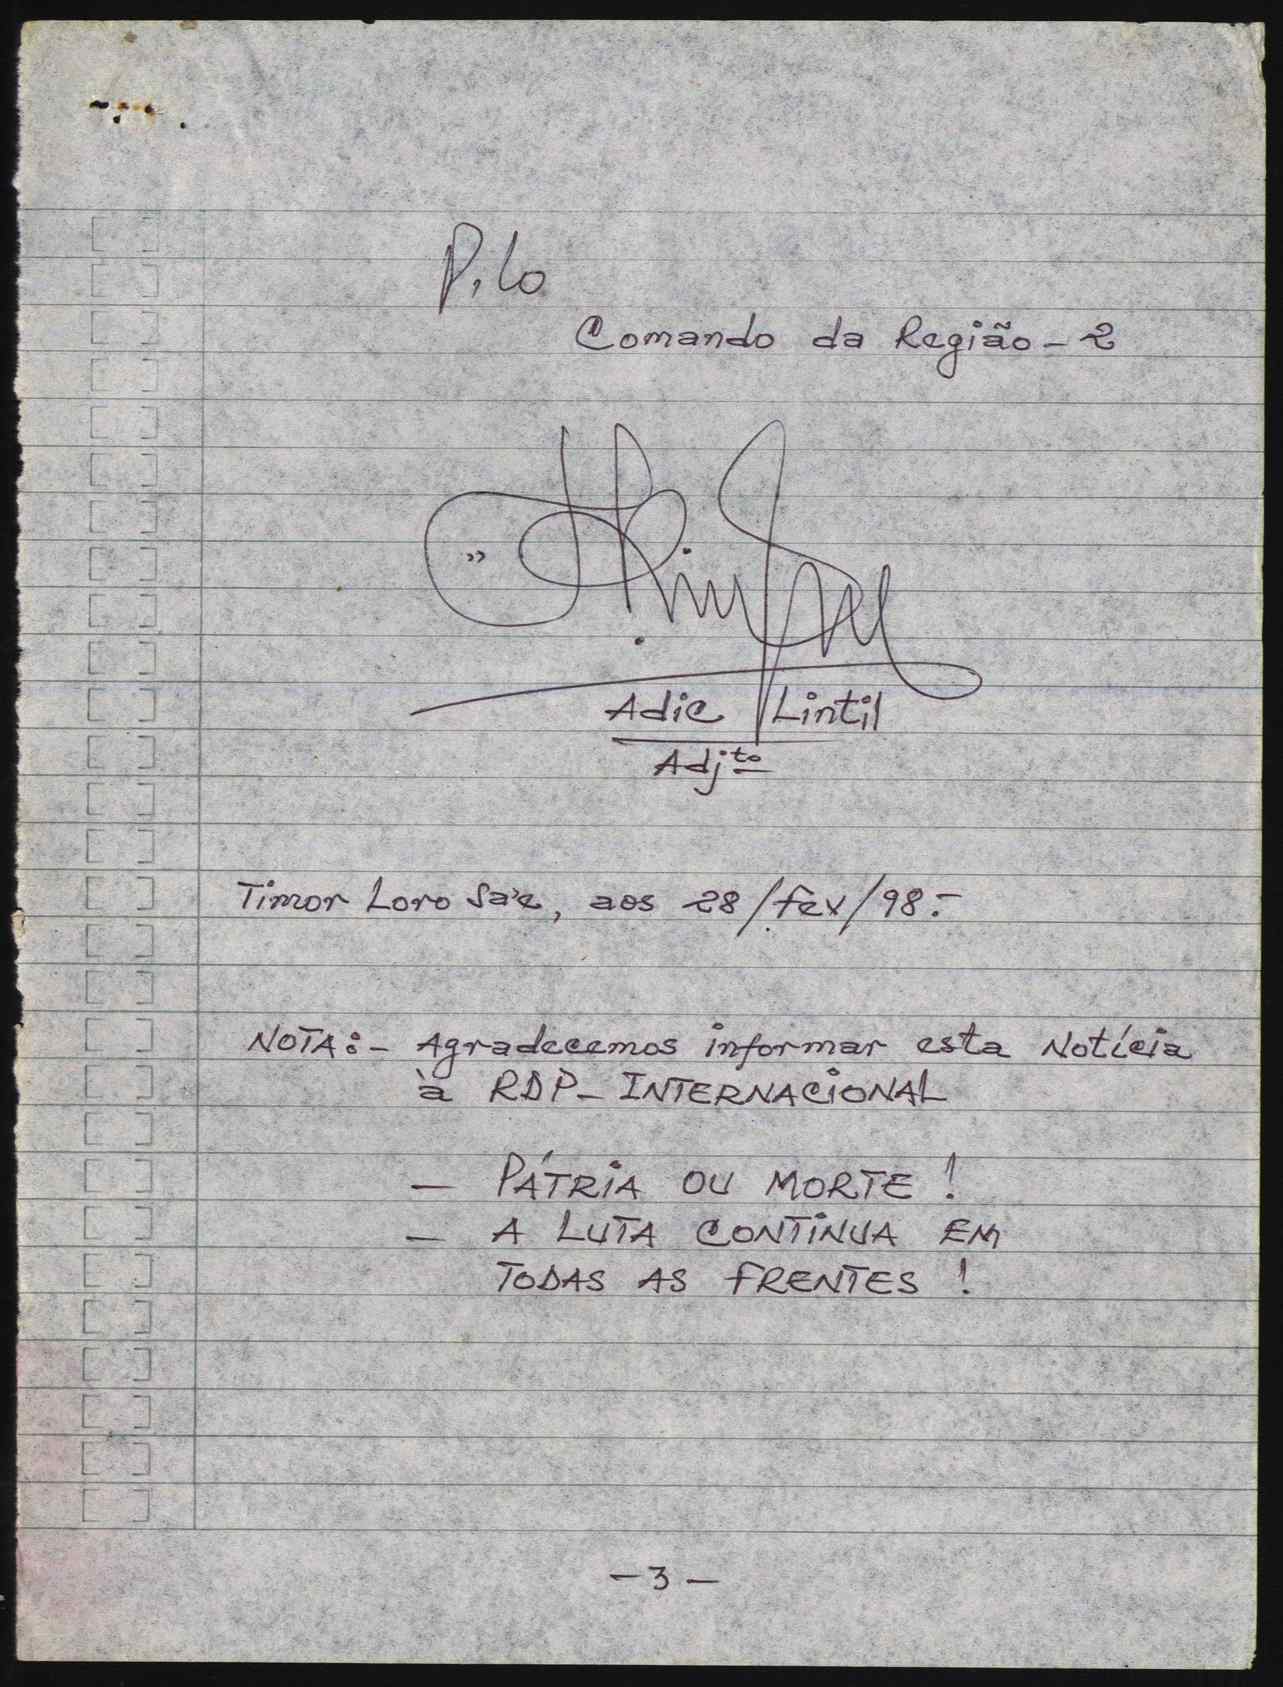 P.lo
Comando da Região - 2
Adic Lintil
Adj.to
Timor Loro Sa'e, aos 28/fev/98.-
NOTA:- Agradecemos informar esta Notícia
à RDP- INTERNACIONAL
- PÁTRIA OU MORTE !
- A LUTA CONTINUA EM
TODAS AS FRENTES !
- 3 -